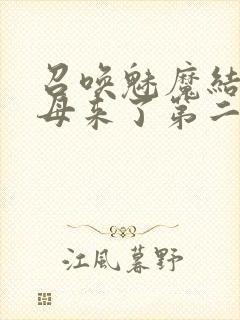 召唤魅魔結
母来了第二
江風暮野